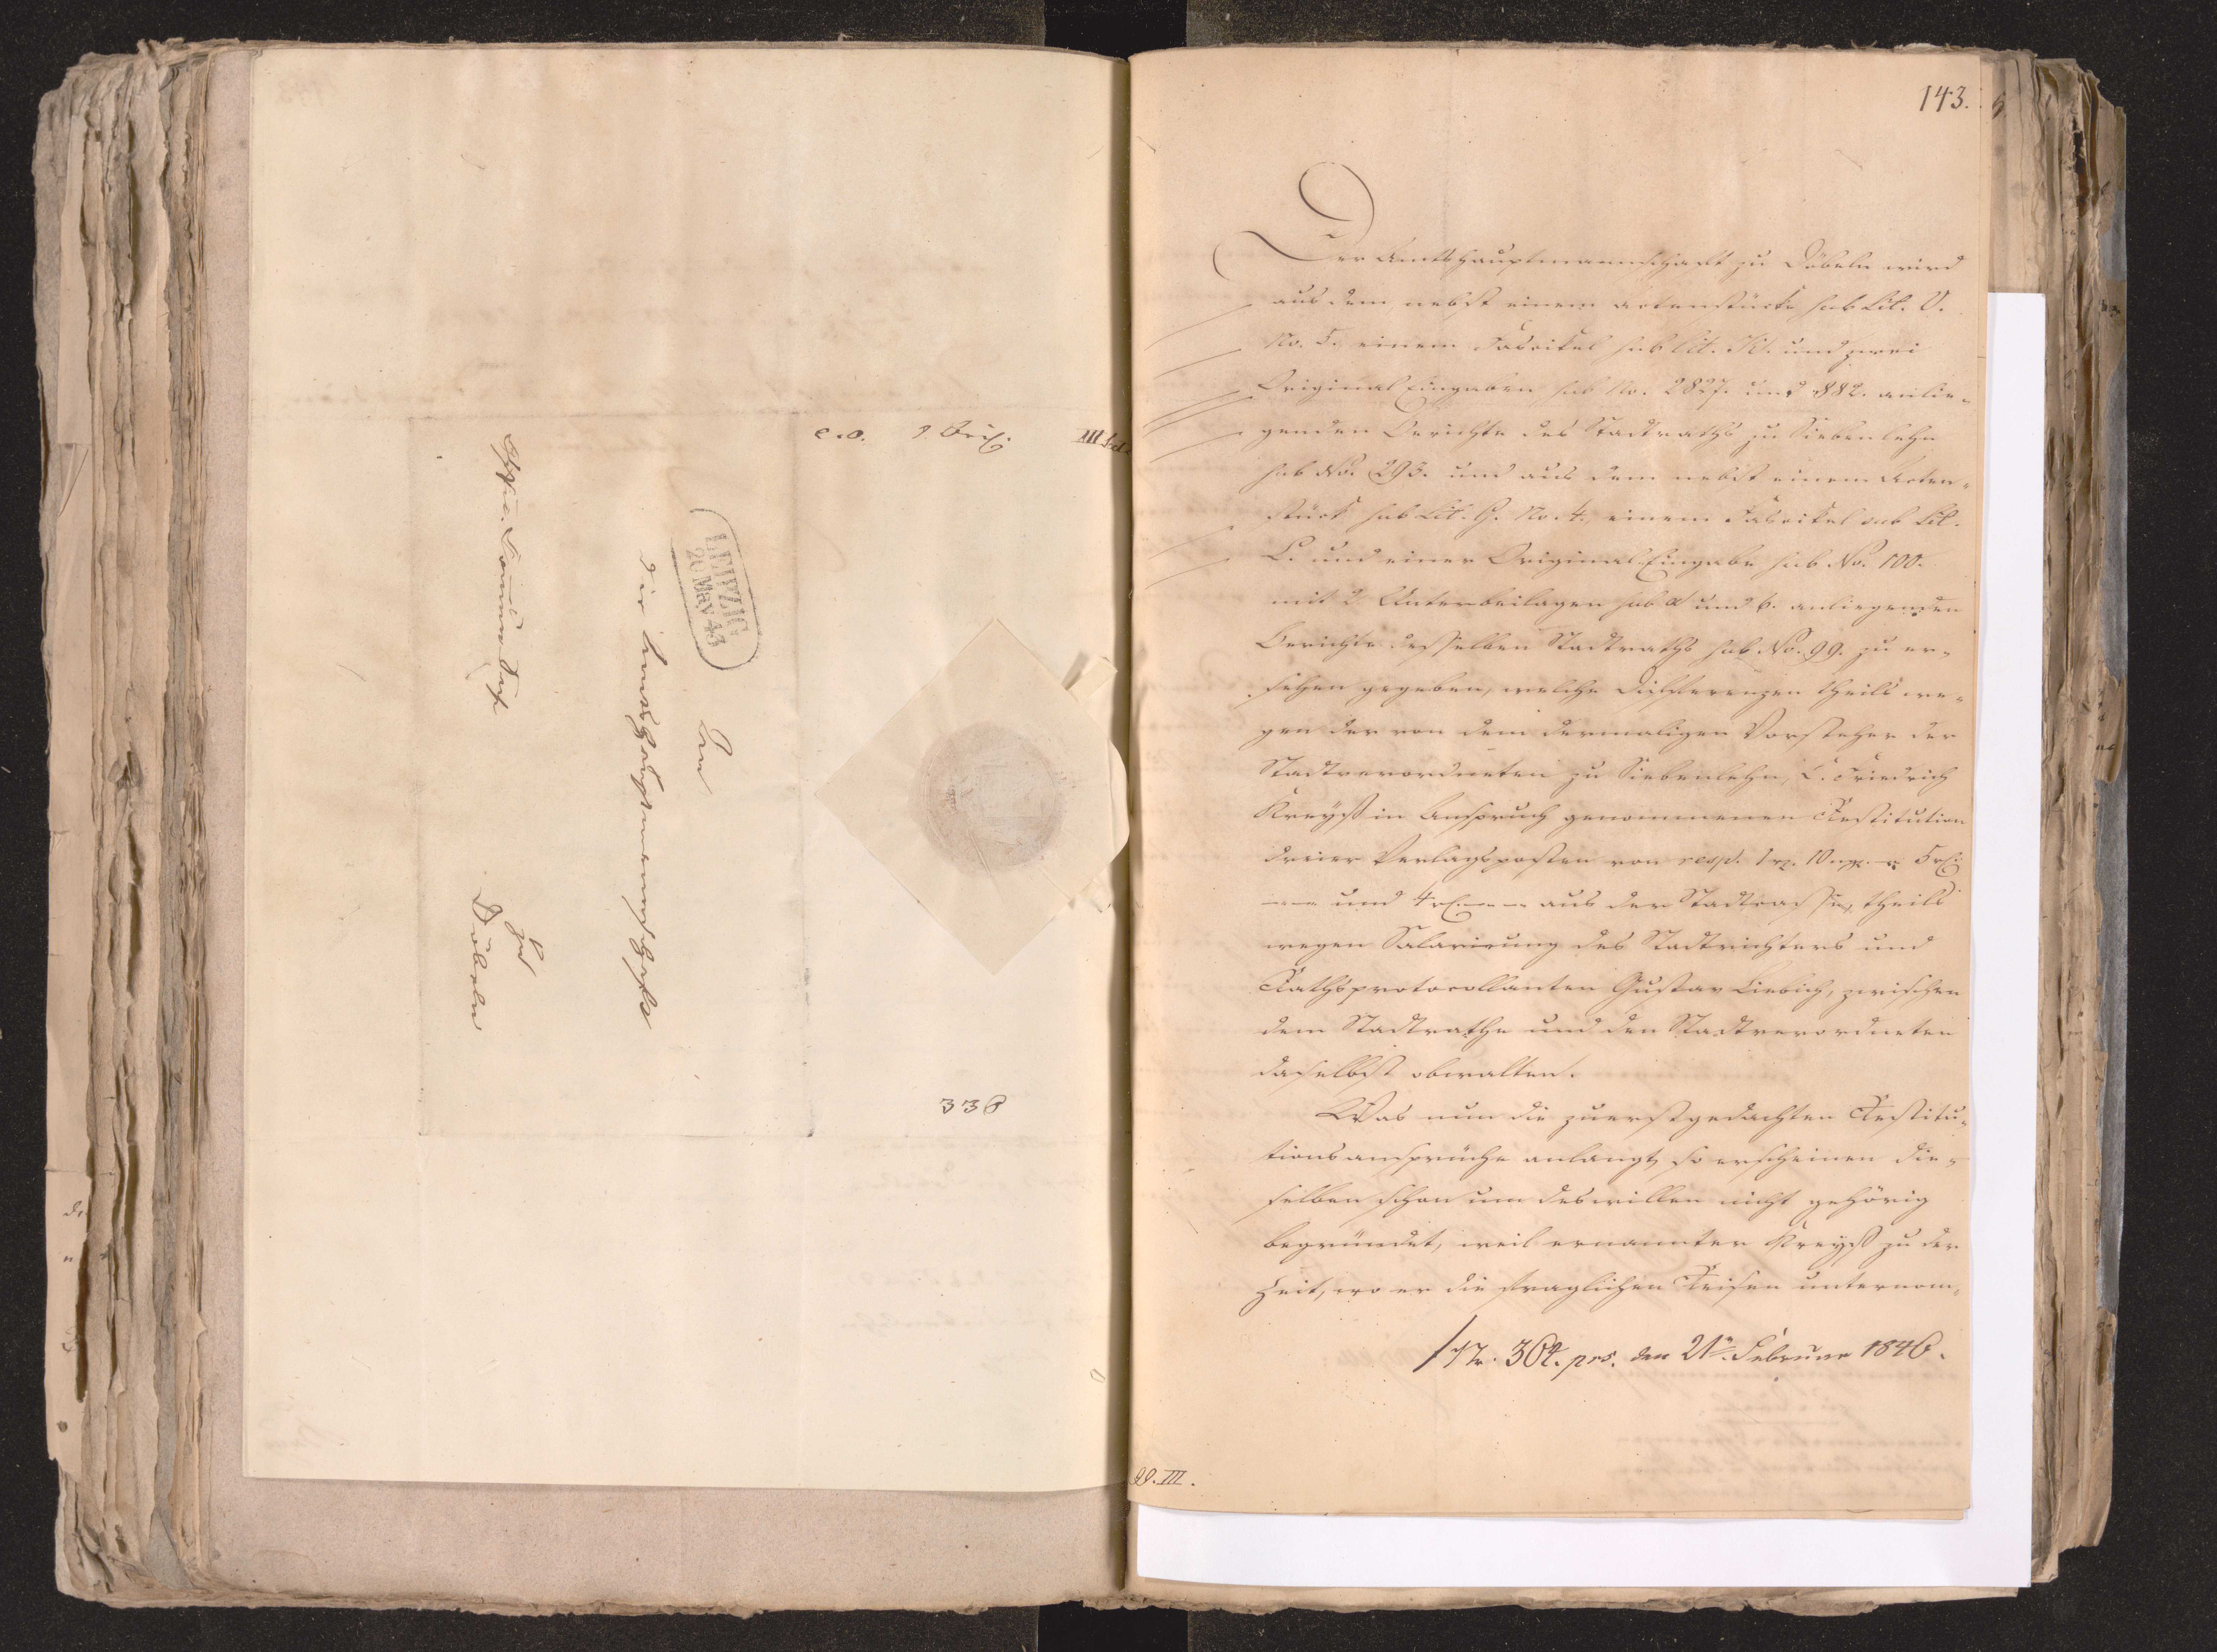 c.o. 9 Bril.
III
LEIPZIG
20 May 45
Der
die Amtshauptmannschaft
zu
Döbeln
338
143.
Der Amtshauptmannschaft zu Döbeln wird
aus dem, nebst einem Actenstücke sub Lit. O.
No. 5. einem Fascikel sub Lit. und zwei
Original Eingaben sub No. 2827. und 882. anlie-
genden Berichte des Stadtraths zu Siebenlehn
sub No. 293. und aus dem nebst einem Acten-
stück sub Lit. G. No. 4. einem Fascikel sub Lit.
C. und einer Original-Eingabe sub No. 100.
mit 2 Unterbeilagen sub a und b. anliegenden
Berichte desselben Stadtraths sub No. 99. zu er-
sehen gegeben, welche Differenzen theils we-
gen der von dem dermaligen Vorsteher der
Stadtverordneten zu Siebenlehn, C. Friedrich
Kreyß in Anspruch genommenen Restitution
dreier Verlagsposten von resp. 1 rl. 10 ngr. – 5 rl.
– – und 4 rl. – – aus der Stadtcasse, theils
wegen Salarirung des Stadtrichters und
Rathsprotocollanten Gustav Liebich, zwischen
dem Stadtrathe und den Stadtverordneten
daselbst obwalten.
Was nun die zuerst gedachten Restitu-
tionsansprüche anlangt, so erscheinen die-
selben schon um deswillen nicht gehörig
begründet, weil ernannter Kreyß zu der
Zeit, wo er die fraglichen Reisen unternom-
/ Nr. 362. prs. den 21n. Februar 1846.
III.